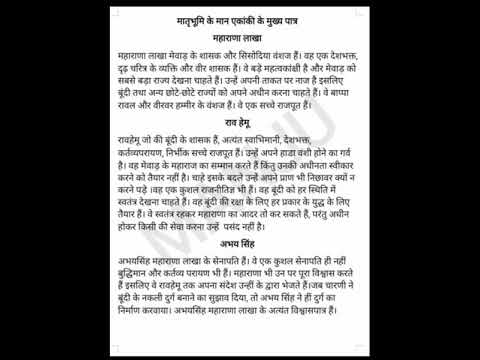 मातृभूमि के मान एकांकी के मुख्य पात्र
महाराणा लाखा
महाराणा लाखा मेवाड़ के शासक और सिसोदिया वंशज हैं। वह एक देशभक्त,
दृढ़ चरित्र के व्यक्ति और वीर शासक हैं। वे बड़े महत्वकांक्षी है और मेवाड़ को
सबसे बड़ा राज्य देखना चाहते हैं। उन्हें अपनी ताकत पर नाज है इसलिए
बूंदी तथा अन्य छोटे-छोटे राज्यों को अपने अधीन करना चाहते हैं। वे बाप्पा
रावल और वीरवर हम्मीर के वंशज हैं। वे एक सच्चे राजपूत हैं।
राव हेमू
रावहेमू जो की बूंदी के शासक हैं, अत्यंत स्वाभिमानी, देशभक्त,
कर्तव्यपरायण, निर्भीक सच्चे राजपूत हैं। उन्हें अपने हाडा वंशी होने का गर्व
है। वह मेवाड़ के महाराज का सम्मान करते हैं किंतु उनकी अधीनता स्वीकार
करने को तैयार नहीं है। चाहे इसके बदले उन्हें अपने प्राण भी निछावर क्यों न
करने पड़े ।वह एक कुशल राजनीतिज्ञ भी हैं। वह बूंदी को हर स्थिति में
स्वतंत्र देखना चाहते हैं। वह बूंदी की रक्षा के लिए हर प्रकार के युद्ध के लिए
तैयार हैं। वे स्वतंत्र रहकर महाराणा का आदर तो कर सकते हैं, परंतु अधीन
होकर किसी की सेवा करना उन्हें पसंद नहीं है।
अभय सिंह
अभयसिंह महाराणा लाखा के सेनापति हैं। वे एक कुशल सेनापति ही नहीं
बुद्धिमान और कर्तव्य परायण भी हैं। महाराणा भी उन पर पूरा विश्वास करते
हैं इसलिए वे रावहेमू तक अपना संदेश उन्हीं के द्वारा भेजते हैं।जब चारणी ने
बूंदी के नकली दुर्ग बनाने का सुझाव दिया, तो अभय सिंह ने हीं दुर्ग का
निर्माण करवाया। अभयसिंह महाराणा लाखा के अत्यंत विश्वासपात्र हैं।